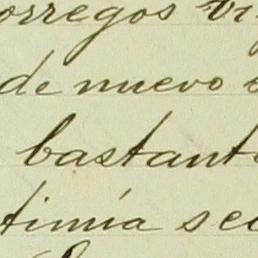 orregos vi
de nuevo e
bastant
timia sec